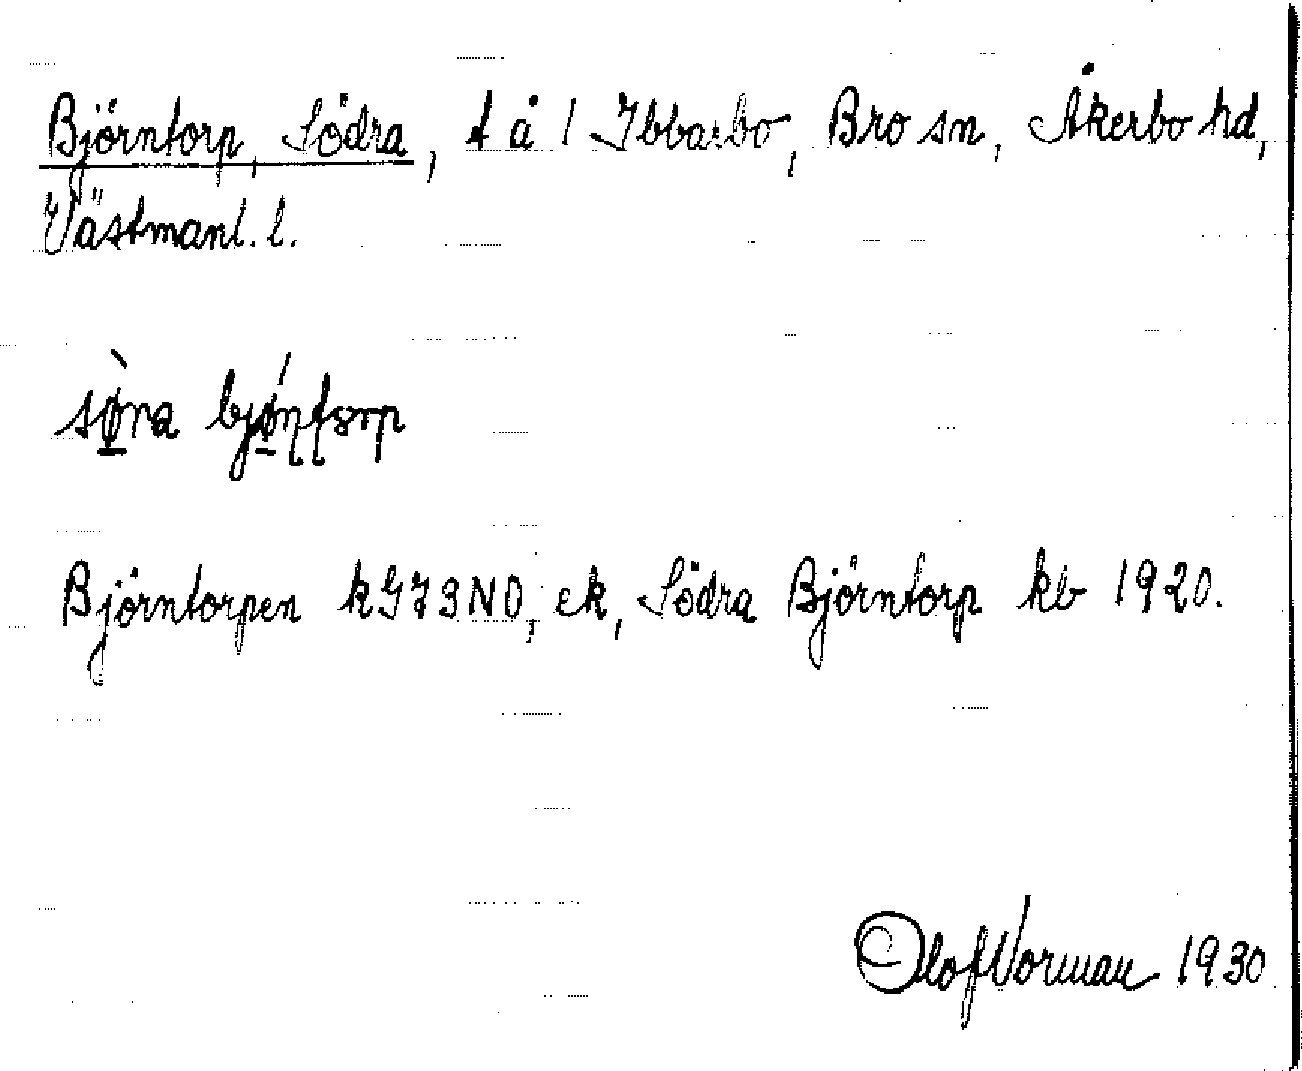 Björntorp, Södra, t å 1 Ibbarbo, Bro sn, Åkerbo hd,
Västmanl. l.
sø̀na bjǿɳʈorp
Björntorpen kG73NO, ek, Södra Björntorp kb 1920.
Olof Norman 1930